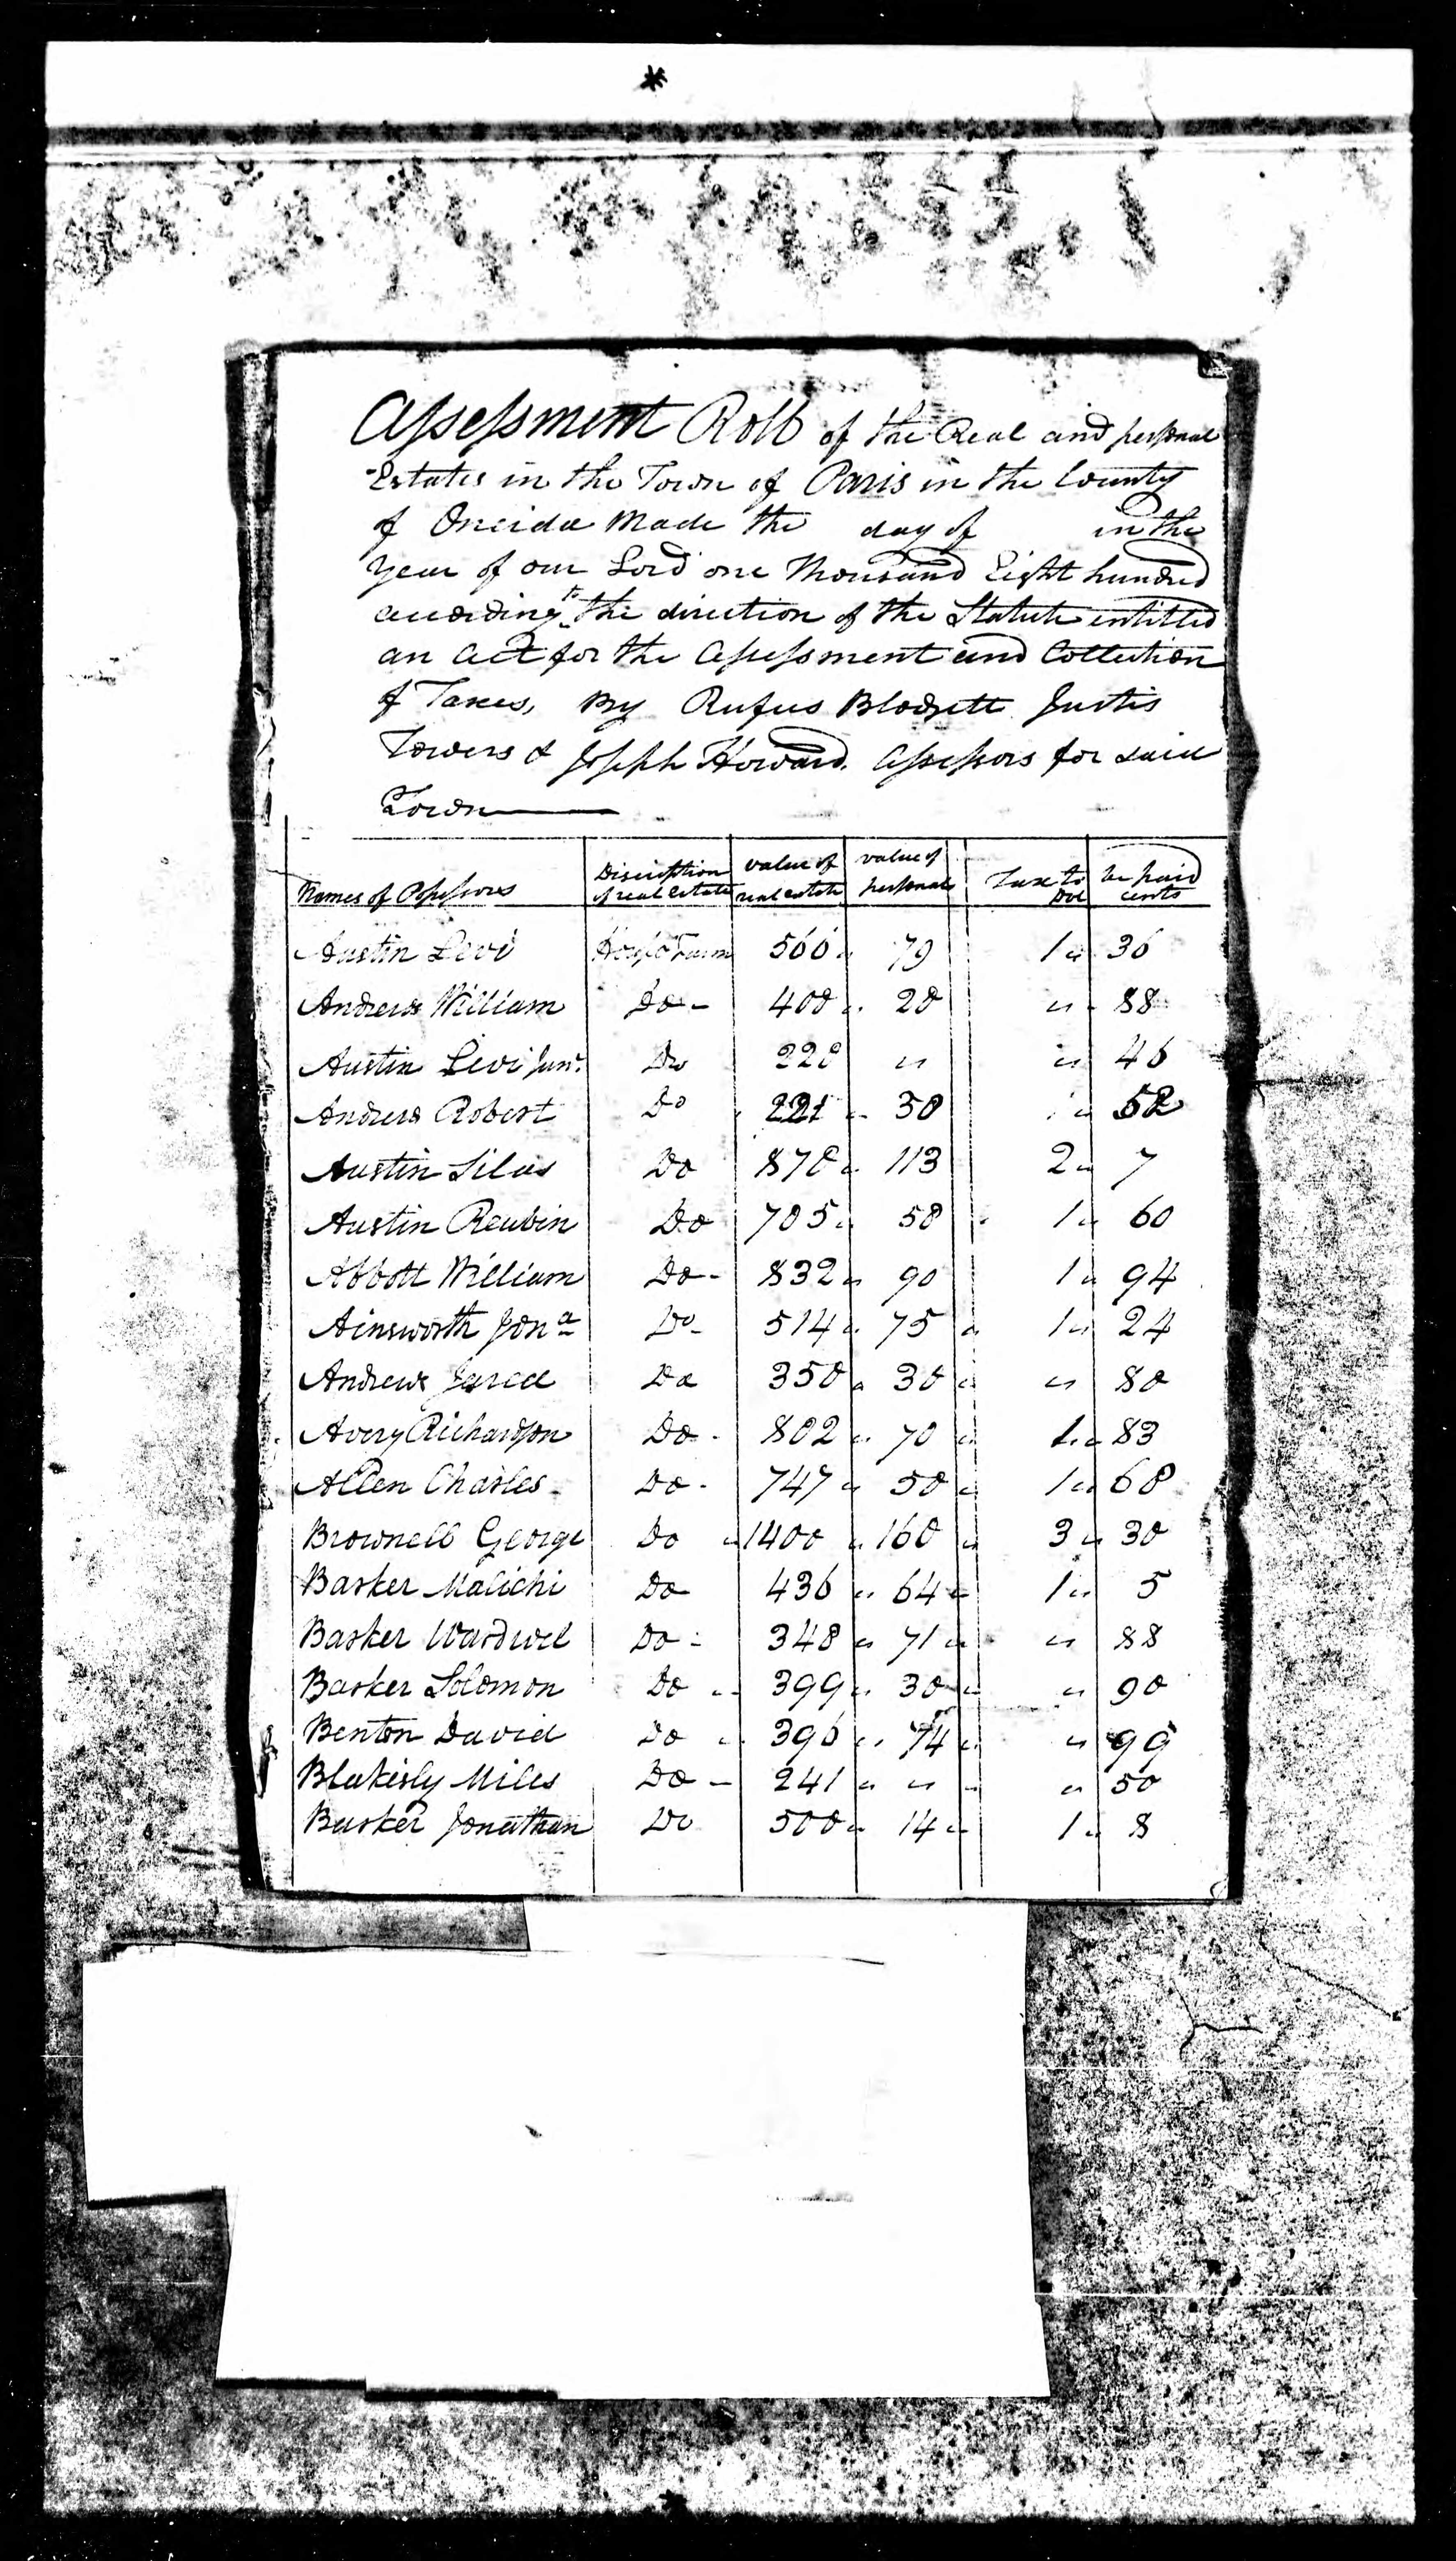 *
Assessment Roll of the Real and personal
Estates in the Town of Paris in the County
of Oneida Made the day of in the
Year of our Lord one Thousand Eight hundred
according to the direction of the Statute intitled
an act for the Assessment and Collection
of Taxes, By Rufus Blodgett Justis
Towers & Joseph Howard. Assessors for said
Town
Names of Possessors Discription of real Estate value of real estate value of personal Tax to Dol be paid cents
Austin Levi House & Farm 566 " 79 1 " 36
Andrews William Do - 400 " 20 " 88
Austin Levi Junr. Do 228 " " 46
Andrews Robert Do 221 " 30 " 52
Austin Silas Do 870 " 113 2 " 7
Austin Reubin Do 705 " 50 1 " 60
Abbott William Do - 832 " 90 1 " 94
Ainsworth Jona Do - 514 " 75 " 1 " 24
Andrews Jared Do 350 " 30 " " 80
Avery Richardson Do - 802 " 70 " 1 " 83
Allen Charles Do - 747 " 50 " 1 " 68
Brownell George Do " 1400 " 160 " 3 " 30
Barker Malichi Do 436 " 64 " 1 " 5
Barker Wardwel Do - 348 " 71 " " 88
Barker Solomon Do " 399 " 30 " " 90
Benton David Do " 396 " 74 " " 99
Blakesly Miles Do - 241 " " " " 50
Barker Jonathan Do 500 " 14 " 1 " 8